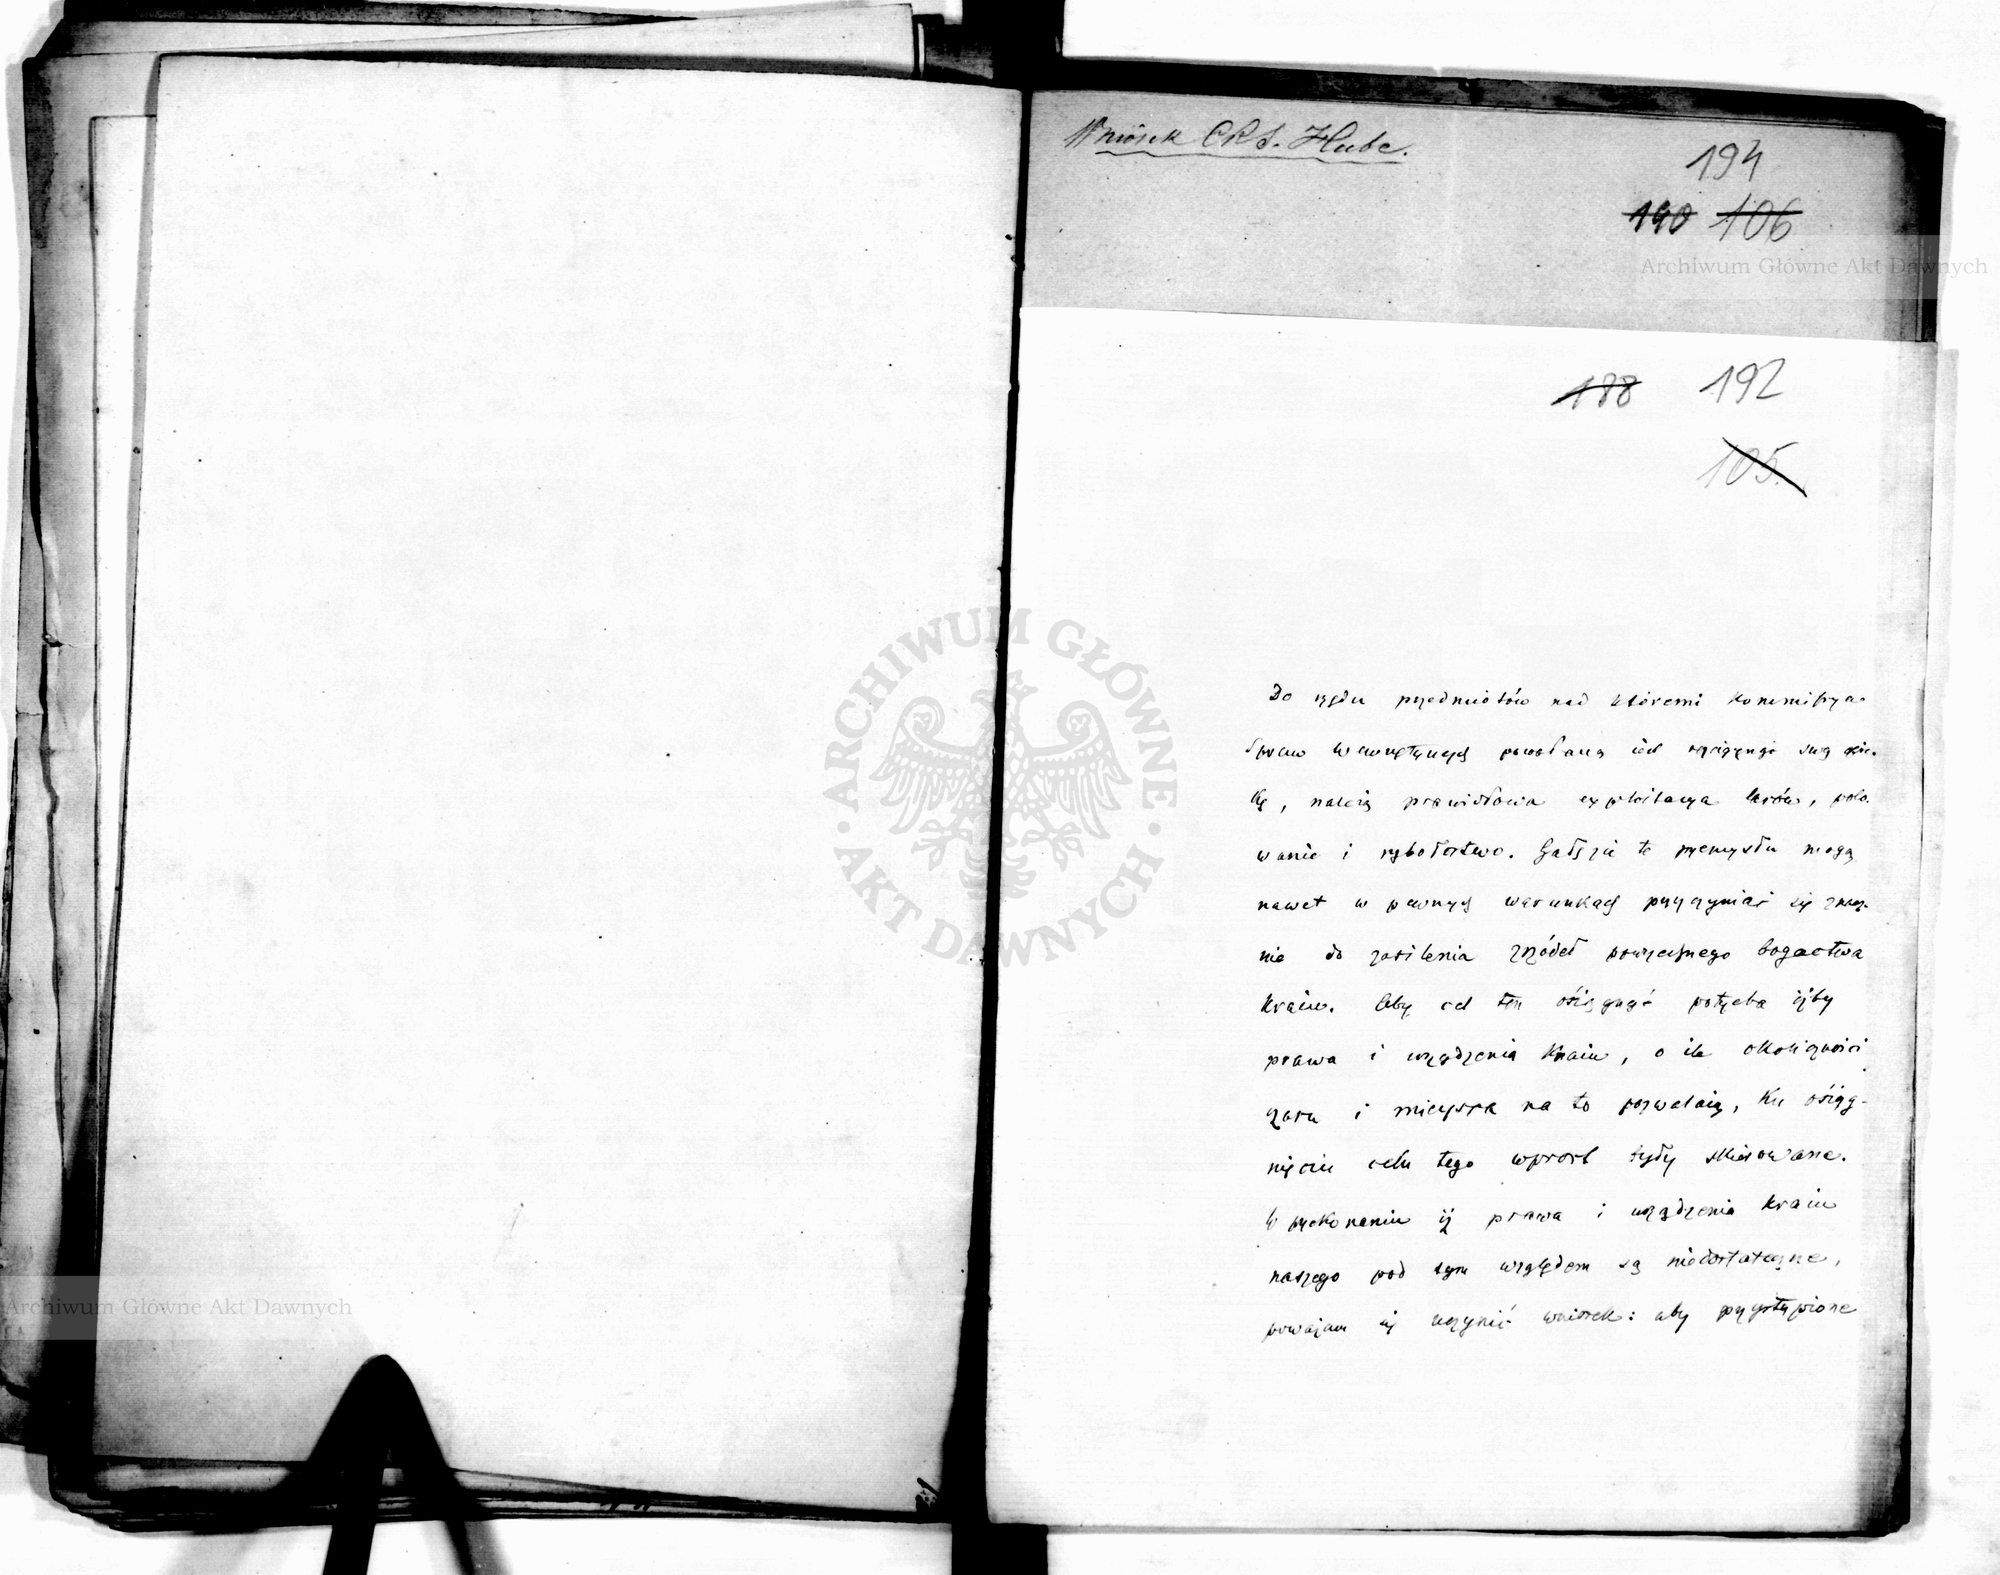 Wniosek CRS. Hube.
194
190 106
Archiwum Główne Akt Dawnych
188 192
105.
ARCHIWUM GŁÓWNE
AKT DAWNYCH
Do rzędu przedmiotów nad któremi Kommissya
Spraw Wewnętrznych powołaną iest rosciągnąć swą opie-
kę, należą prawidłowa exploitacya lasów, polo-
wanie i rybołostwo. Gałęzie te przemysłu mogą
nawet w pewnych warunkach przyczyniać się znacz-
nie do zasilenia zrzódeł powszechnego bogactwa
kraiu. Aby cel ten osiągnąć potrzeba iżby
prawa i urządzenia kraiu, o ile okoliczności
czasu i mieysca na to pozwalaią, ku osiąg-
nięciu celu tego wprost były skierowane.
W przekonaniu iż prawa i urządzenia kraiu
naszego pod tym względem są niedostateczne,
poważam się uczynić wniosek: aby przystąpiono
Archiwum Główne Akt Dawnych